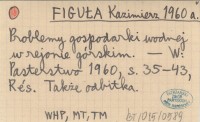 FIGUŁA Kazimierz 1960 a.
Problemy gospodarki wodnej
w rejonie górskim. — W:
Pasterstwo 1960, s. 35-43,
Rés. Także odbitka.
WHP, MT, TM